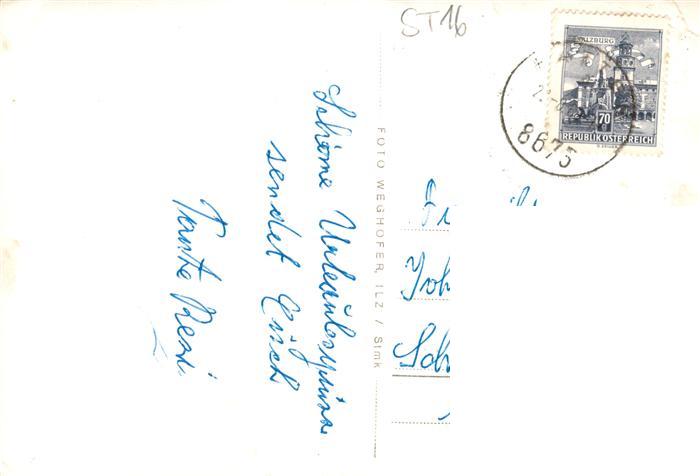 ST 16
SALZBURG
70
REPUBLIK ÖSTERREICH
8675
Schöne Urlaubsgrüsse
sendet Euch
Tante Resi
FOTO WEGHOFER, ILZ / Stmk
Joh
Sch